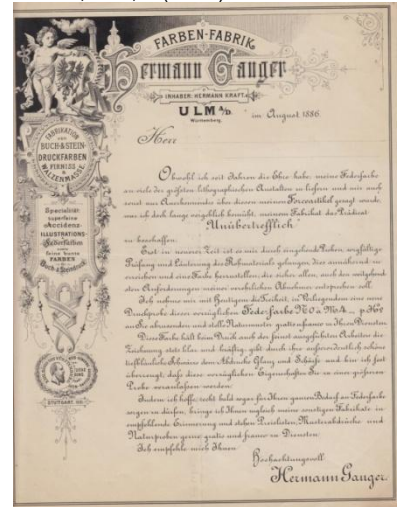 FARBEN-FABRIK
Hermann Gauger
INHABER: HERMANN KRAFT.
ULM a/D.
Württemberg.
im August 1886.
FABRIKATION
VON
BUCH- & STEIN-
DRUCKFARBEN
FIRNISS
&
WALZENMASSE
Specialität
superfeine
Accidenz-
ILLUSTRATIONS-
&
Federfarben
sowie
feine bunte
FARBEN
für
Buch & Steindruck
STUTTGART 1881
Herr
Obwohl ich seit Jahren die Ehre habe, meine Federfarbe
an viele der größten lithographischen Anstalten zu liefern und mir auch
sonst aus Anerkennnis über diesen meinen Forceartikel gesagt wurde,
war ich doch lange vergeblich bemüht, meinem Fabrikat das Prädicat
"Unübertrefflich"
zu verschaffen.
Erst in neuerer Zeit ist es mir durch eingehende Proben, sorgfältige
Prüfung und Läuterung des Rohmaterials gelungen, dies annähernd zu
erreichen und eine Farbe herzustellen, die sicher allen, auch den weitgehend-
sten Anforderungen meiner verehrlichen Abnehmer entsprechen soll.
Ich nehme mir mit Heutigem die Freiheit, in Vorliegendem eine neue
Druckprobe dieser vorzüglichen Federfarbe No 0 a M 4.— p. Ko
an Sie abzusenden und stelle Naturmuster gratis & franco zu Ihren Diensten.
Diese Farbe hält beim Druck auch der feinst ausgeführten Arbeiten die
Zeichnung stets klar und kräftig, gibt durch ihre außerordentlich schöne
tiefblauliche Schwärze dem Abdrucke Glanz und Schärfe und bin ich fest
überzeugt, daß diese vorzüglichen Eigenschaften Sie zu einer größeren
Probe veranlassen werden.
Indem ich hoffe, recht bald sogar für Ihren ganzen Bedarf an Federfarbe
sorgen zu dürfen, bringe ich Ihnen zugleich meine sonstigen Fabrikate in
empfehlende Erinnerung und stehen Preislisten, Musterabdrücke und
Naturproben gerne gratis und franco zu Diensten.
Ich empfehle mich Ihnen
Hochachtungsvoll
Hermann Gauger.